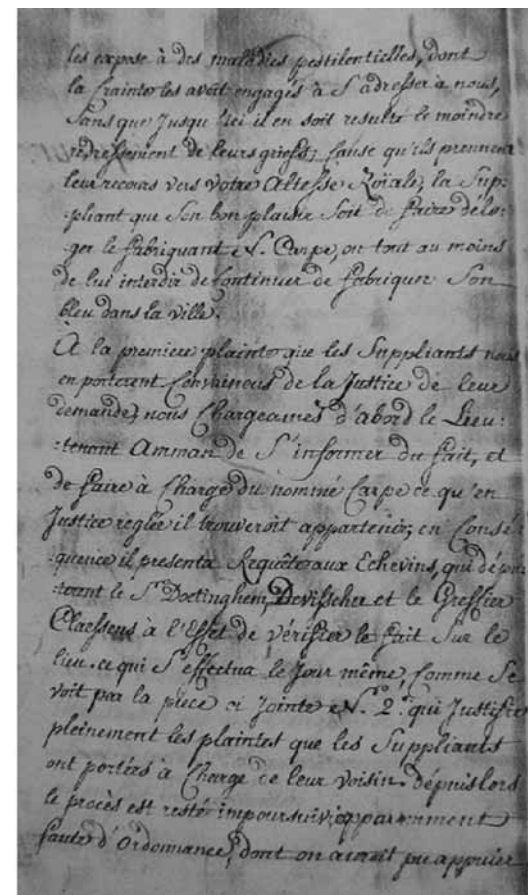 les expose à des maladies pestilentielles, dont
la Crainte les avoit engagés à S'adresser à nous,
Sans que Jusqu'ici il en soit resulté le moindre
redressement de leurs griefs; Cause qu'ils prennent
leur recours vers Votre Altesse Roïale, la Sup-
:pliant que Son bon plaisir Soit de faire délo-
:ger le fabriquant N. Carpe, ou tout au moins
de lui interdir de Continuer de fabriquer Son
bleu dans la ville.
À la premiere plainte que les Suppliants nous
en porterent Convaincus de la Justice de leur
demande, nous Chargeames d'abord le Lieu:
:tenant Amman de S'informer du fait, et
de faire à Charge du nommé Carpe ce qu'en
Justice reglée il trouveroit appartenir; en Consé-
:quence il presenta Requête aux Echevins, qui dépu
:terent le Sr. Doetinghem, Devisscher et le Greffier
Claessens à l'Effet de vérifier le fait Sur le
lieu. ce qui S'effectua le Jour même, Comme Se
voit par la piece ci Jointe N.o 2.o qui Justifie
pleinement les plaintes que les Suppliants
ont portées à Charge de leur Voisin. dépuis lors
le procès est resté impoursuivi apparemment
faute d'Ordonnance, dont on auroit pu appuier